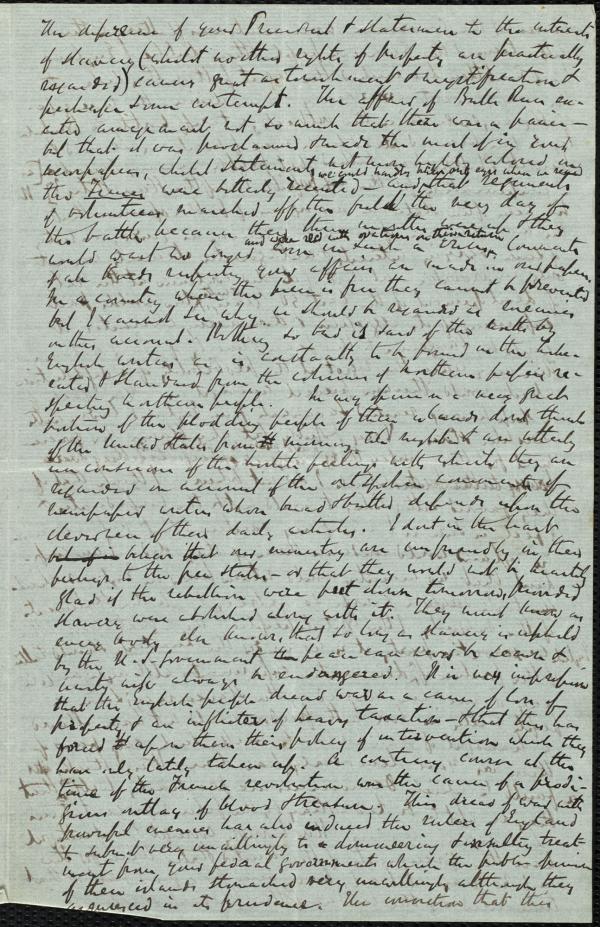 The deference of your President & statesmen to the interests
of slavery (whilst no other rights of property are practically
regarded) causes great astonishment & mystification &
perhaps some contempt. The affair of Bulls Run ex-
cited amazement, not so much that there was a panic –
but that it was proclaimed & made the most of in your
newspapers, whilst statements not more highly colored in
we could hardly believe our eyes when we read
the Times were bitterly resented – and that regiments
of volunteers marched off the field the very day of
the battle because their three months were up & they
and were rec'd with ovations on their return
would want no longer. Comments
of all kinds respecting your affairs are made in our papers.
In a country where the press is free they cannot be prevented
but I cannot see why we should be regarded as enemies
on this account. Nothing so bad is said of the North by
English writers as is constantly to be found in the Liber-
ator & Standard from the columns of Northern papers re-
specting Northern people. In my opinion a very great
portion of the plodding people of these islands don't think
of the United States from morning till night & are utterly
unconscious of the hostile feelings with which they are
regarded on account of the outspoken comments of
newspaper writers whose bread & butter depends upon the
cleverness of their daily articles. I don't in the least
believe that our ministry are unfriendly in their
feelings to the free states – or that they would not be heartily
glad if the rebellion were put down tomorrow, provided
slavery were abolished along with it. They must know as
every body else knows, that so long as slavery is upheld
by the U.S. Government peace can never be secure &
must always be endangered. It is my impression
that the English people dread war as a cause of loss of
property & an inflicter of heavy taxation – & that this has
forced upon them their policy of intervention which they
have only lately taken up. A contrary course at the
time of the French revolution was the cause of a prodi-
gious outlay of blood & treasure. This dread of war with
powerful enemies has also induced the rulers of England
to submit very unwillingly to a domineering & insulting treat-
ment from your federal governments which the public opinion
of these islands stomached very unwillingly although they
acquiesced in its prudence. The conviction that this